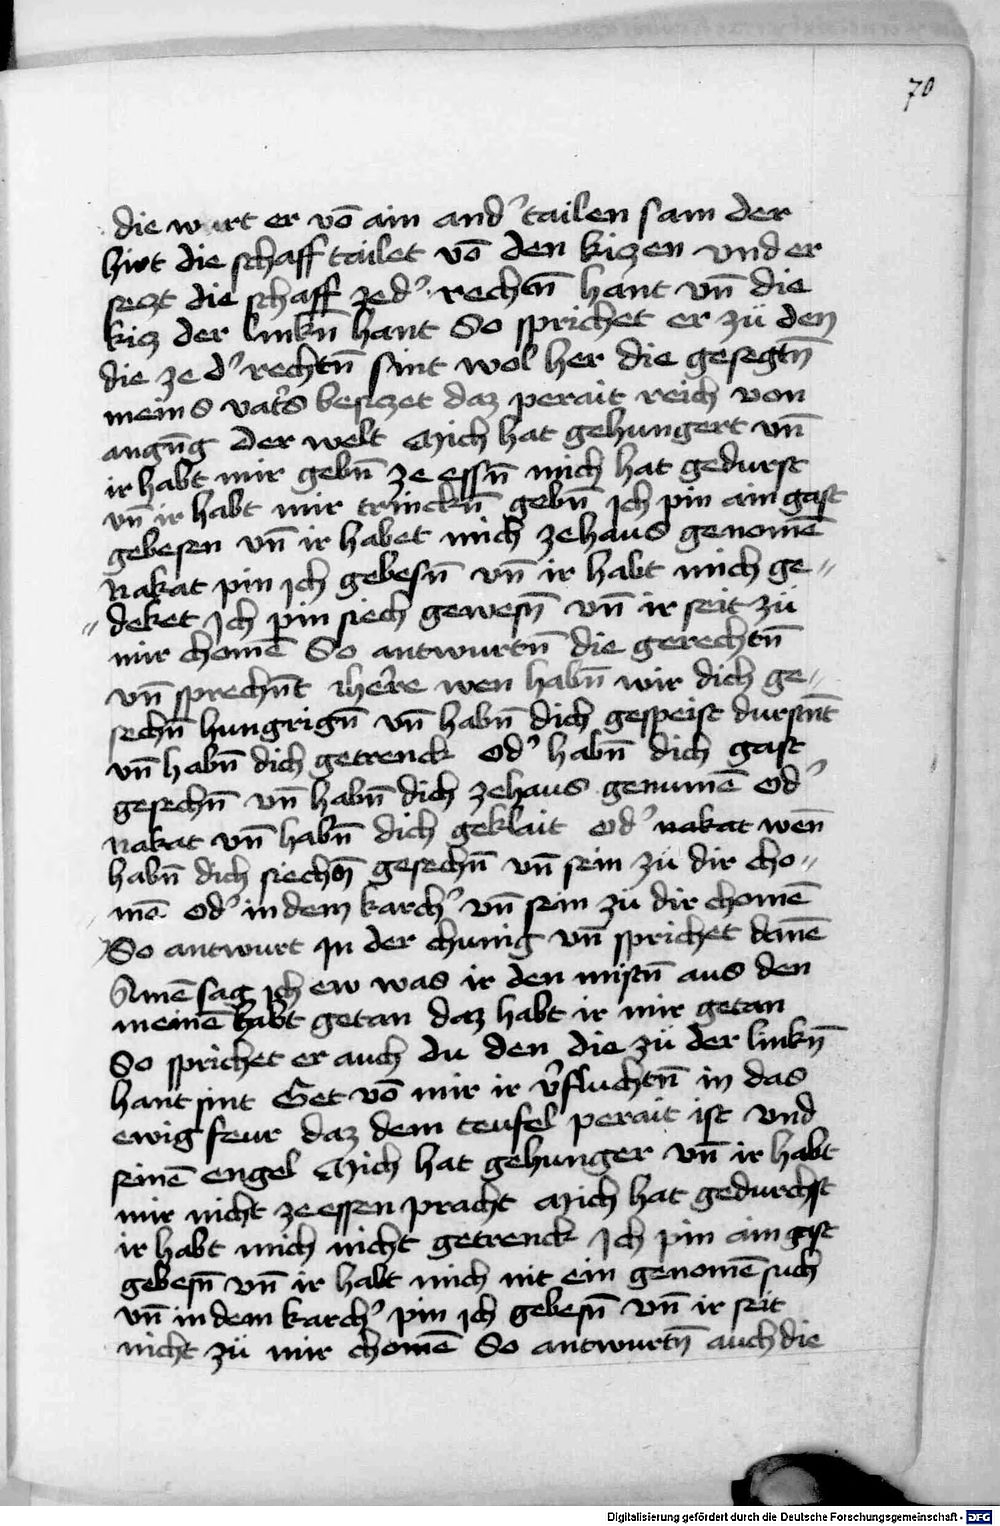 70
die wurt er võ ain and' tailen sam der
hirt die schaff tailet võ den kizen vnd er
seczt die schaff ze d' rechtñ hant vñ die
kiz der linkñ hant So sprichet er zü den
die ze d' rechtñ sint wol her die gesegtñ
meins vat's besiczet daz perait reich von
angñg der welt Mich hat gehungert vñ
ir habt mir gebñ ze essñ mich hat gedurst
vñ ir habt mir trinckñ gebñ Ich pin ain gast
gebesen vñ ir habet mich zehaus genomē
Nakat pin ich gebesñ vñ ir habt mich ge„
„deket Ich pin siech gewesñ vñ ir seit zü
mir chomē So antwurtñ die gerechtñ
vñ sprechñt Here wen habñ wir dich ge„
sechñ hungrigñ vñ habñ dich gespeist dursñt
vñ habñ dich getrenck Od' habñ dich gast
gesechñ vñ habñ dich zehaus genumē Od'
nakat vñ habñ dich geklait Od' nakat weñ
habñ dich siechñ gesechñ vñ sein zü dir cho„
mē Od' in dem karch' vñ sein zü dir chomē
So antwurt In der chunig vñ sprichet denē
Amē sag ich ew was ir den mistñ aus den
meinē habt getan daz habt ir mir getan
So sprichet er auch du den die zü der linkñ
hant sint Get võ mir ir v'fluchtñ in das
ewig feur daz dem teufel perait ist vnd
seinē engel Mich hat gehunger vñ ir habt
mir nicht ze essen pracht Mich hat gedurchst
ir habt mich nicht getrenck Ich pin ain gast
gebesñ vñ ir habt mich nit ein genomē such
vñ in dem karch' pin ich gebesñ vñ ir seit
nicht zü mir chomē So antwurtñ auch die
Digitalisierung gefördert durch die Deutsche Forschungsgemeinschaft - DFG